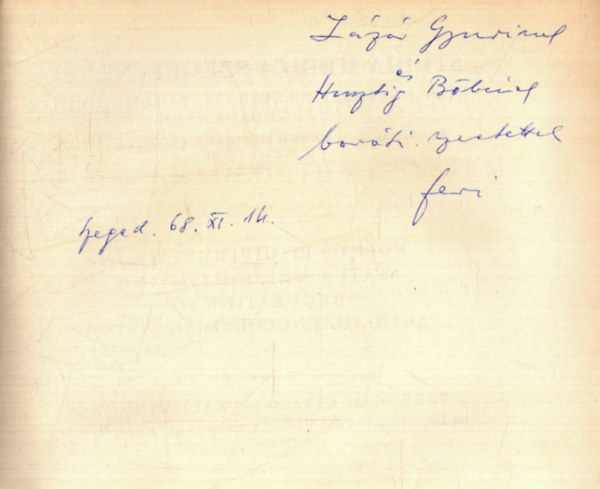 Lázár Gyurinak
és
Husztig Böbének
baráti szeretettel
feri
Szeged. 68. XI. 14.